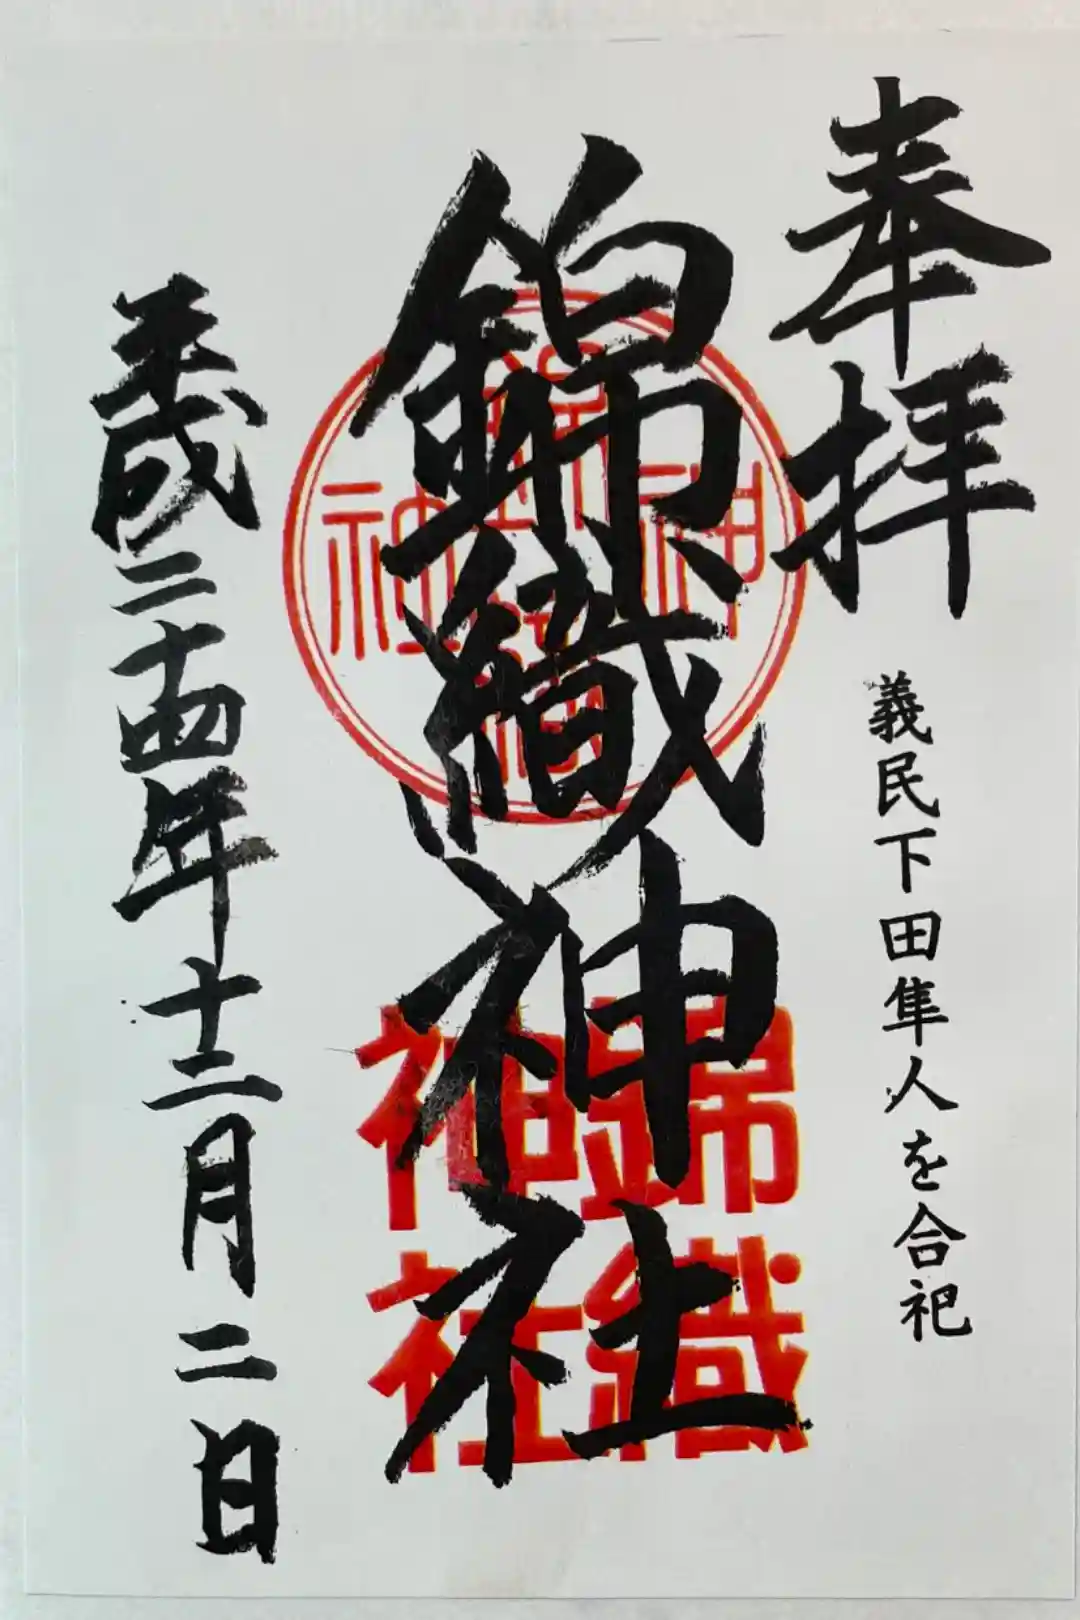 奉拝
義民下田隼人を合祀
錦織神社
錦織神社
錦織神社
平成二十四年十二月二日